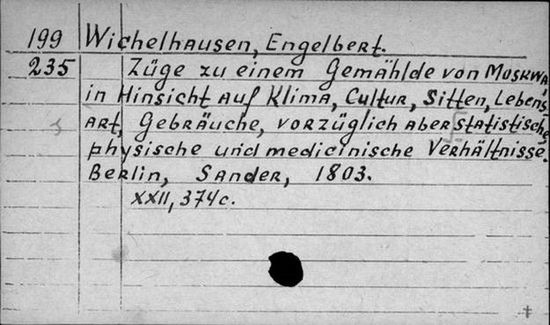 199 Wichelhausen, Engelbert.
235 Züge zu einem Gemählde von Moskwa,
in Hinsicht auf Klima, Cultur, Sitten, Lebens
art, Gebräuche, vorzüglich aber statistische,
physische und medicinische Verhältnisse.
Berlin, Sander, 1803.
XXII, 374 c.